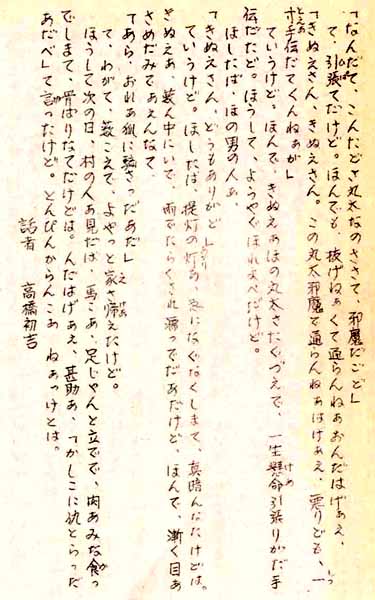 「なんだて、こんたどさ丸太なのささて、邪魔だごど」
て、引張てだけど。ほんでも、抜げねぁくて通らんねぁおんだはげぁえ、
「きぬえさん、きぬえさん。この丸太邪魔で通らんねぁはけぁえ、悪りども、一
寸手伝だてくんねぁが」
ていうけど。ほんで、きぬえぁほの丸太さたぐづえで、一生懸命引張りがだ手
伝だたど。ほうして、ようやぐほれ
ほしたば、ほの男の人ぁ、
「きぬえさん、どうもありがど」
ていうけど。ほしたば、提灯の灯ぁ急になぐなくしまて、真暗んなたけどは。
きぬえぁ、藪ん中にいで、雨でたらぐされ だあだけど、ほんで、漸く目ぁ
さめだみでぁえんなて、
「あら、おれぁ狐に騙さっだあだ」
て、わがて、藪こえで、よやっと家さ帰えたけど。
ほうして次の日、村の人ぁ見だば、馬こぁ、足じゃんと立でで、肉あみな食っ
でしまて、骨ばりなてだけどは。んだはげぁえ、甚助ぁ、「かしこに仇とらった
あだべ」て言ったけど。とんぴんからんこぁ ねぁっけとは。
話者 高橋初吉